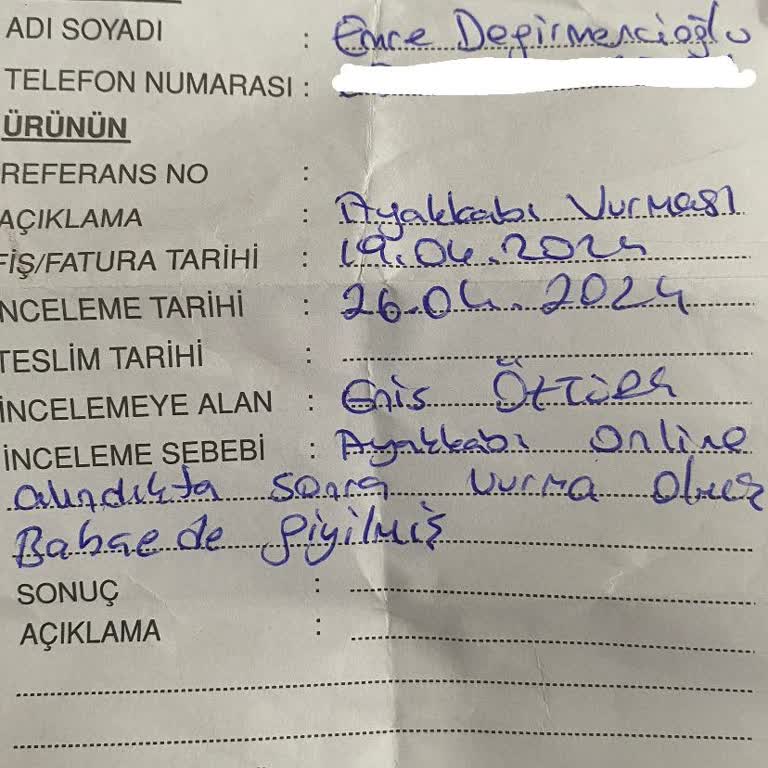 ADI SOYADI : Emre Değirmencioğlu
TELEFON NUMARASI :
ÜRÜNÜN
REFERANS NO :
AÇIKLAMA : Ayakkabı Vurması
FİŞ/FATURA TARİHİ : 19.04.2024
İNCELEME TARİHİ : 26.04.2024
TESLİM TARİHİ :
İNCELEMEYE ALAN : Enis
İNCELEME SEBEBİ : Ayakkabı online
alındıkta sonra vurma olmuş
Bahçede giyilmiş
SONUÇ :
AÇIKLAMA :